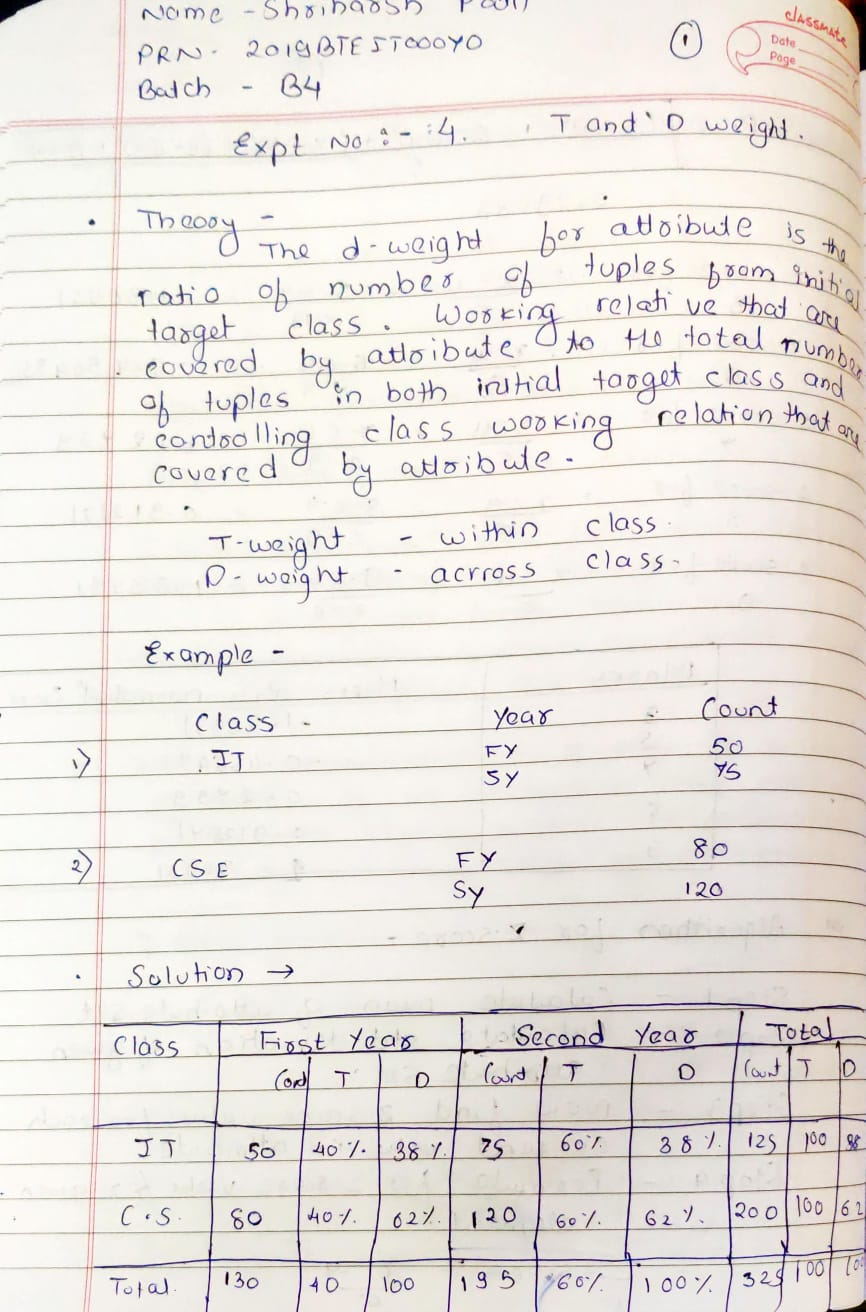 Name - Shriharsh Patil
classmate
Date
Page
PRN - 2019BTEIT00040
1
Batch - B4
Expt No :- :4. T and D weight.
Theory -
The d-weight for attribute is the
ratio of number of tuples from initial
target class. Working relative that are
covered by attribute to the total number
of tuples in both initial target class and
controlling class working relation that are
covered by attribute.
T-weight - within class.
D-weight - acrross class.
Example -
Class - Year Count
1) IT FY 50
SY 75
2) CSE FY 80
SY 120
Solution →
Class First Year Second Year Total
T D Count T D Count T D
IT 50 40%. 38%. 75 60%. 38%. 125 100
C.S. 80 40%. 62%. 120 60%. 62%. 200 100 62
Total. 130 40 100 195 60%. 100%. 325 100